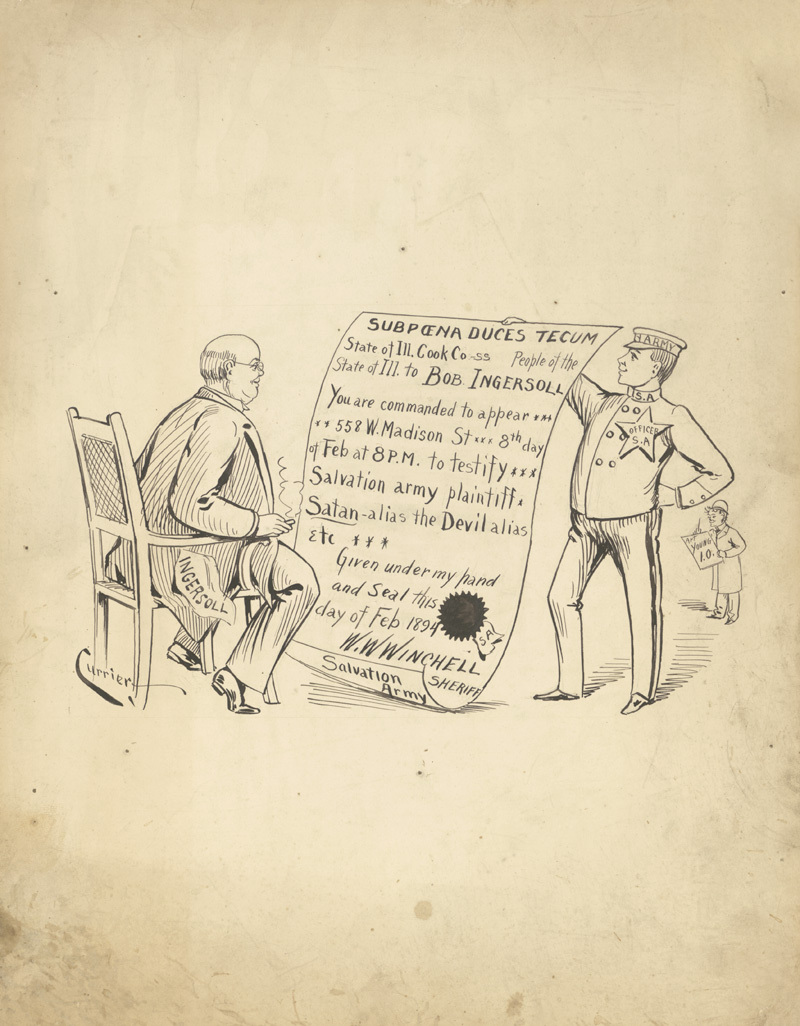 SUBPŒNA DUCES TECUM
State of Ill. Cook Co -ss People of the
State of Ill. to BOB INGERSOLL
You are commanded to appear ***
** 558 W. Madison St *** 8th day
of Feb at 8 P.M. to testify ***
Salvation army plaintiff *
Satan-alias the Devil alias
Etc ***
Given under my hand
and Seal this
day of Feb 1894
W.W WINCHELL
SHERIFF
Salvation
Army
S.A
INGERSOLL
Currier
ARMY
S.A.
OFFICER
S.A
YOUNG
I.O.